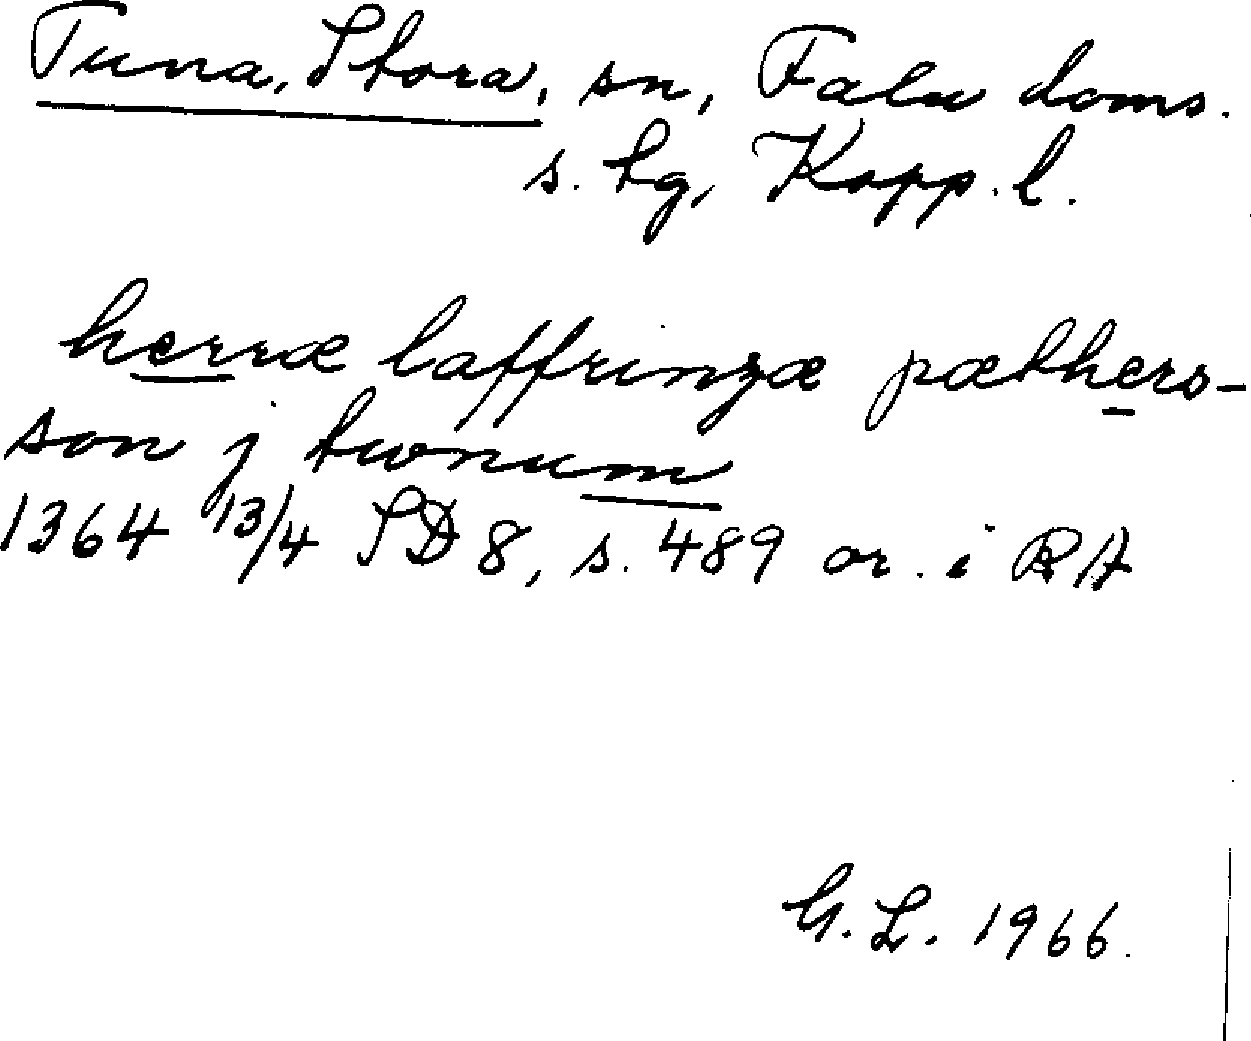 Tuna, Stora, sn, Falu doms.
s. tg, Kopp. l.
herræ laffrinzæ pæthers-
son j twnum
1364 13/4 SD 8, s. 489 or. i RA
G. L. 1966.